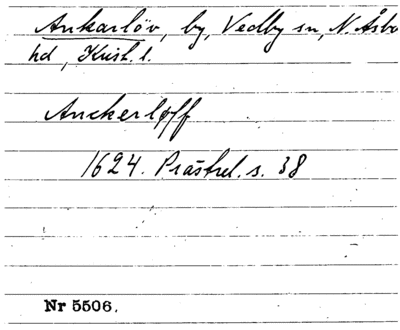 Ankarlöv, by, Vedby sn, N. Åsbo
hd, Krist. l.
Anckerlöff
1624. Prästrel. s. 38
Nr 5506.